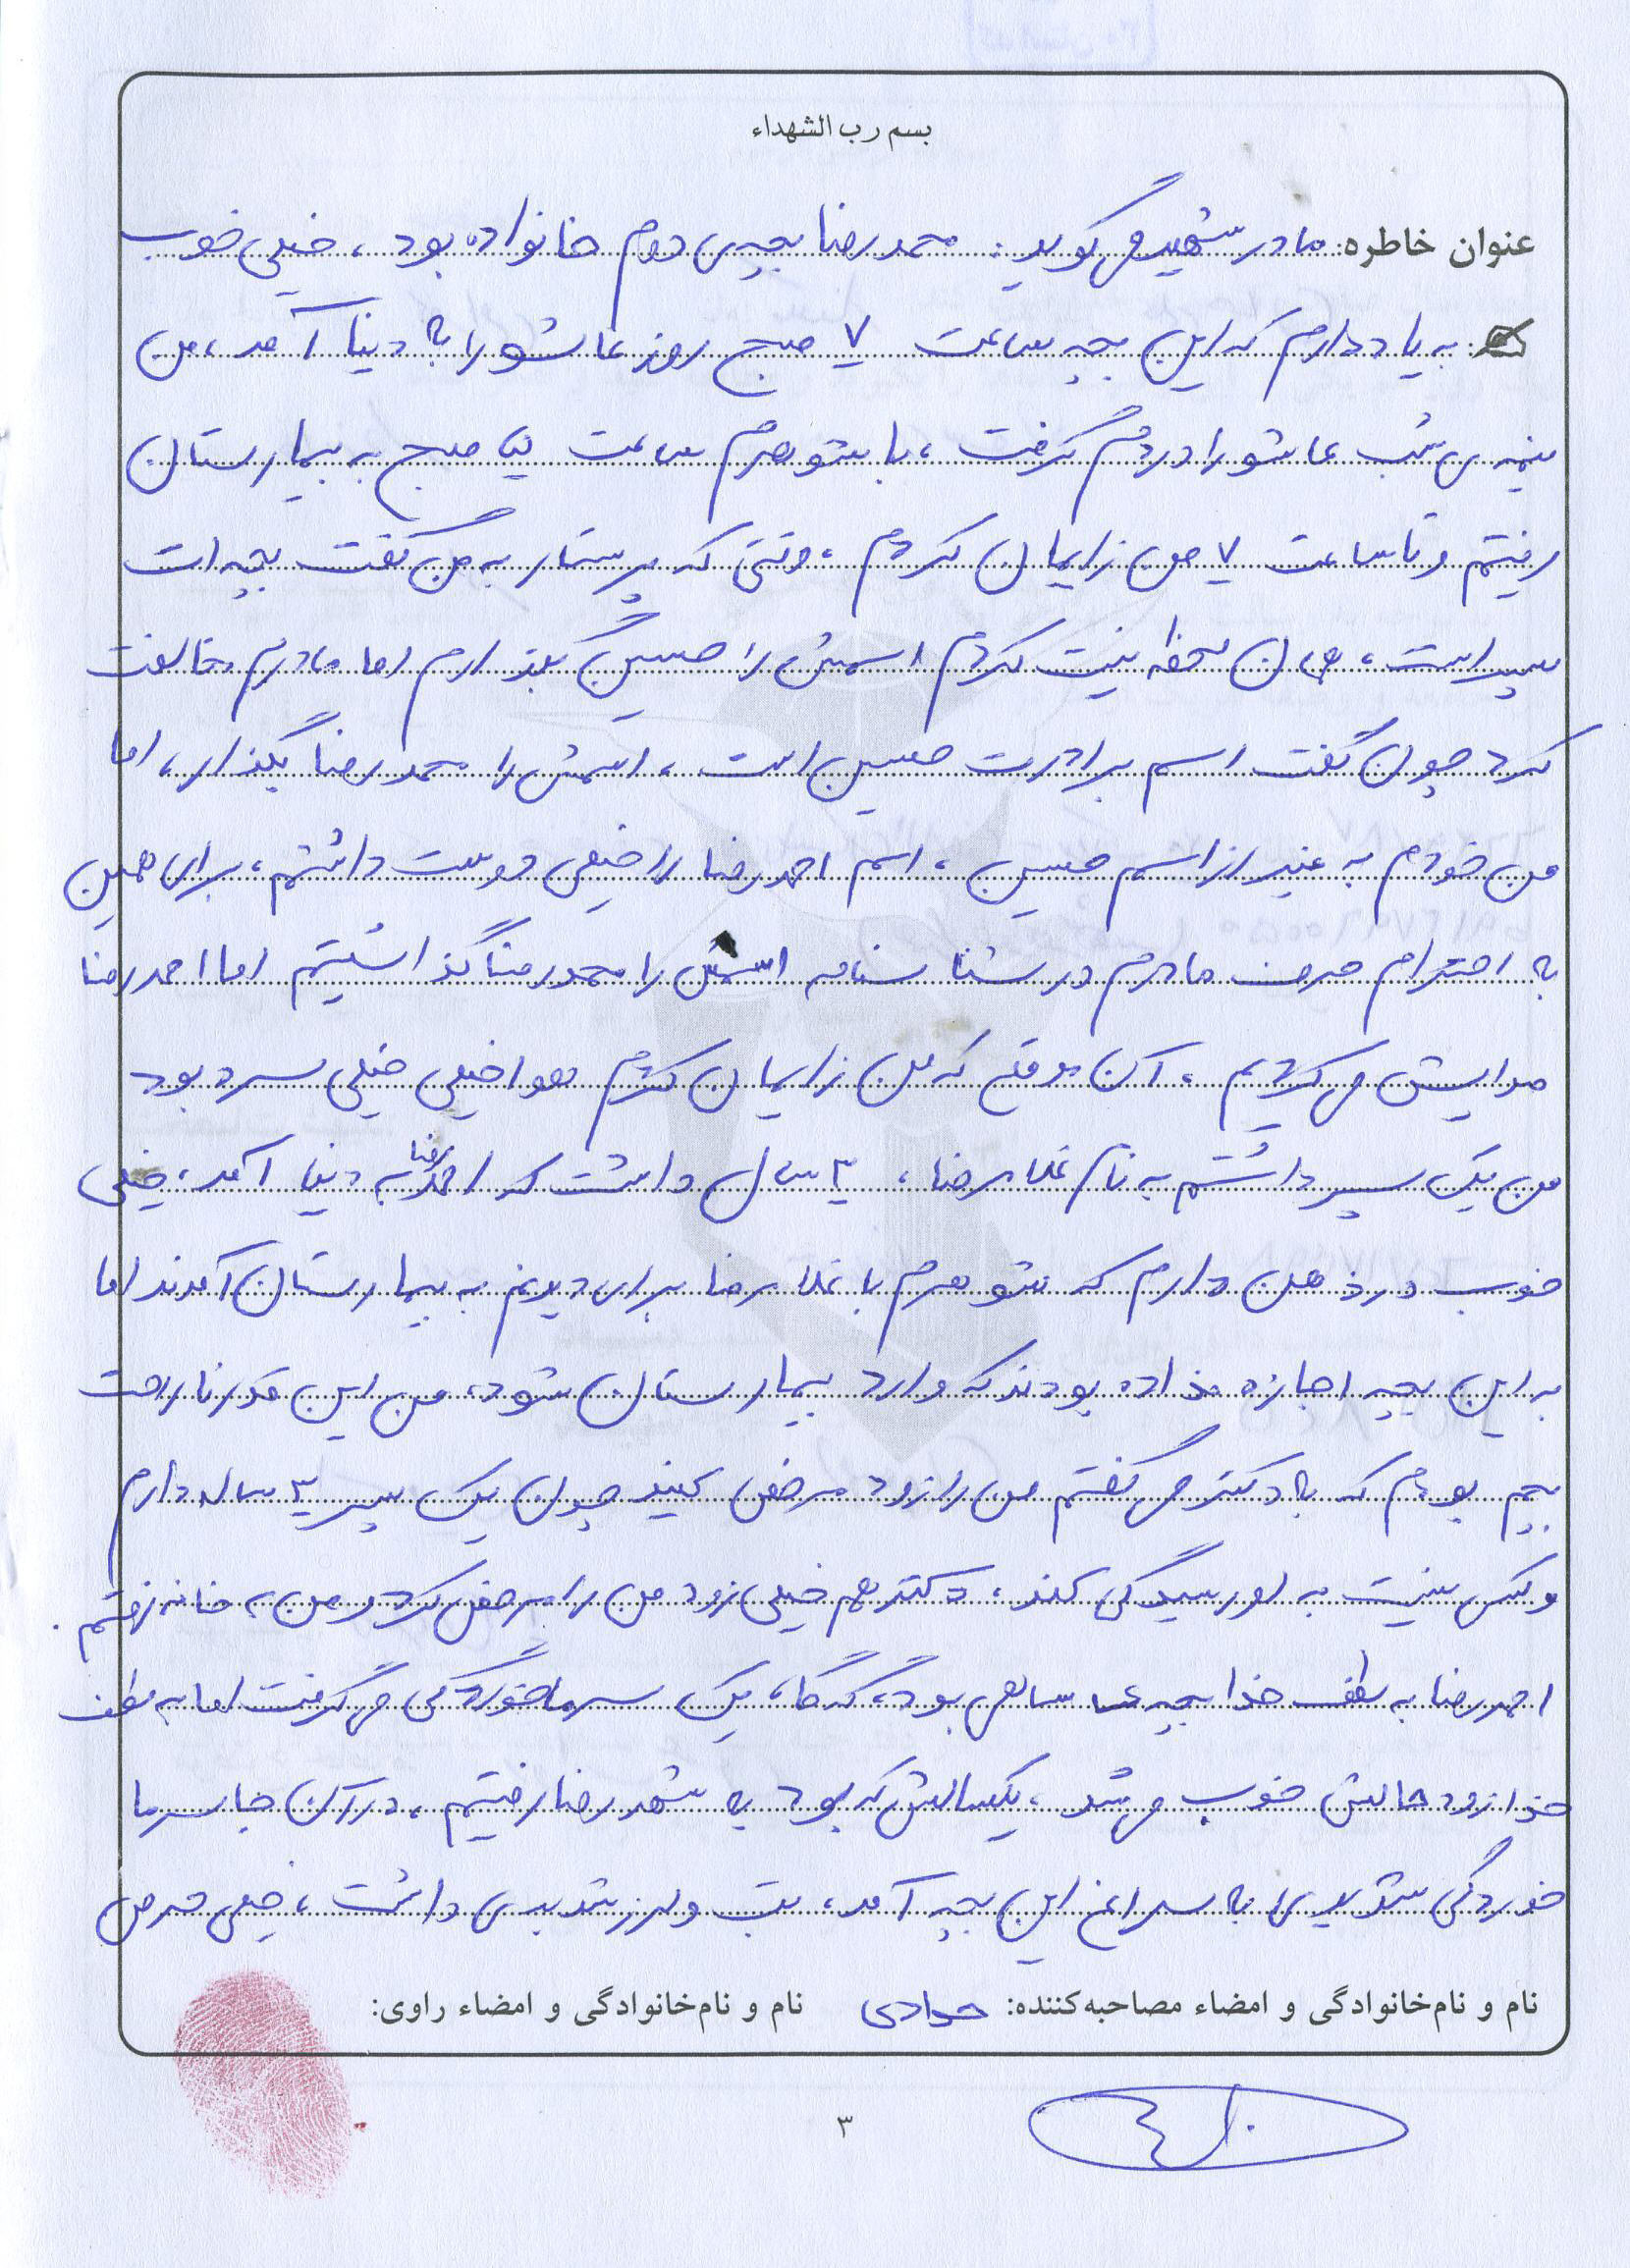 بسم رب الشهداء
عنوان خاطره: مادر شهید می گوید: محمدرضا بچه ی دوم خانواده بود، خیلی خوب
به یاد دارم که این بچه ساعت ۷ صبح روز عاشورا به دنیا آمد، من
نیمه ی شب عاشورا دردم گرفت، با شوهرم ساعت صبح به بیمارستان
رفتیم و تا ساعت ۷ من زایمان کردم، وقتی که پرستار به من گفت بچه ات
پسر است، همان لحظه نیت کردم اسمش را حسین بگذارم اما مادرم مخالفت
کرد چون گفت اسم برادرت حسین است، اسمش را محمدرضا بگذار، اما
من خودم به غیر از اسم حسین، اسم احمدرضا را خیلی دوست داشتم، برای همین
به احترام حرف مادرم در شناسنامه اسمش را محمدرضا گذاشتیم اما احمدرضا
صدایش می کردیم، آن موقع که من زایمان کردم هوا خیلی خیلی سرد بود
من یک پسر داشتم به نام غلامرضا، ۳ سال داشت که احمدرضا به دنیا آمد، خیلی
خوب در ذهن دارم که شوهرم با غلامرضا برای دیدنم به بیمارستان آمدند اما
به این بچه اجازه نداده بودند که وارد بیمارستان شود، من این قدر ناراحت
بچم بودم که به دکتر می گفتم من را زود مرخص کنید چون یک پسر ۳ ساله دارم
و کس نیست به او رسیدگی کند، دکتر هم خیلی زود من را مرخص کرد و من به خانه رفتم.
احمدرضا به لطف خدا بچه سالمی بود، گه گاه یک سرماخوردگی می گرفت اما به لطف
خدا زود حالش خوب می شد، یکسالش که بود به شهدرضا رفتیم، در آن جا سرما
خوردگی شدیدی به سراغ این بچه آمد، تب و لرز شدیدی داشت، خیلی مرض
نام و نام‌خانوادگی و امضاء مصاحبه‌کننده: جوادی نام و نام‌خانوادگی و امضاء راوی:
۳